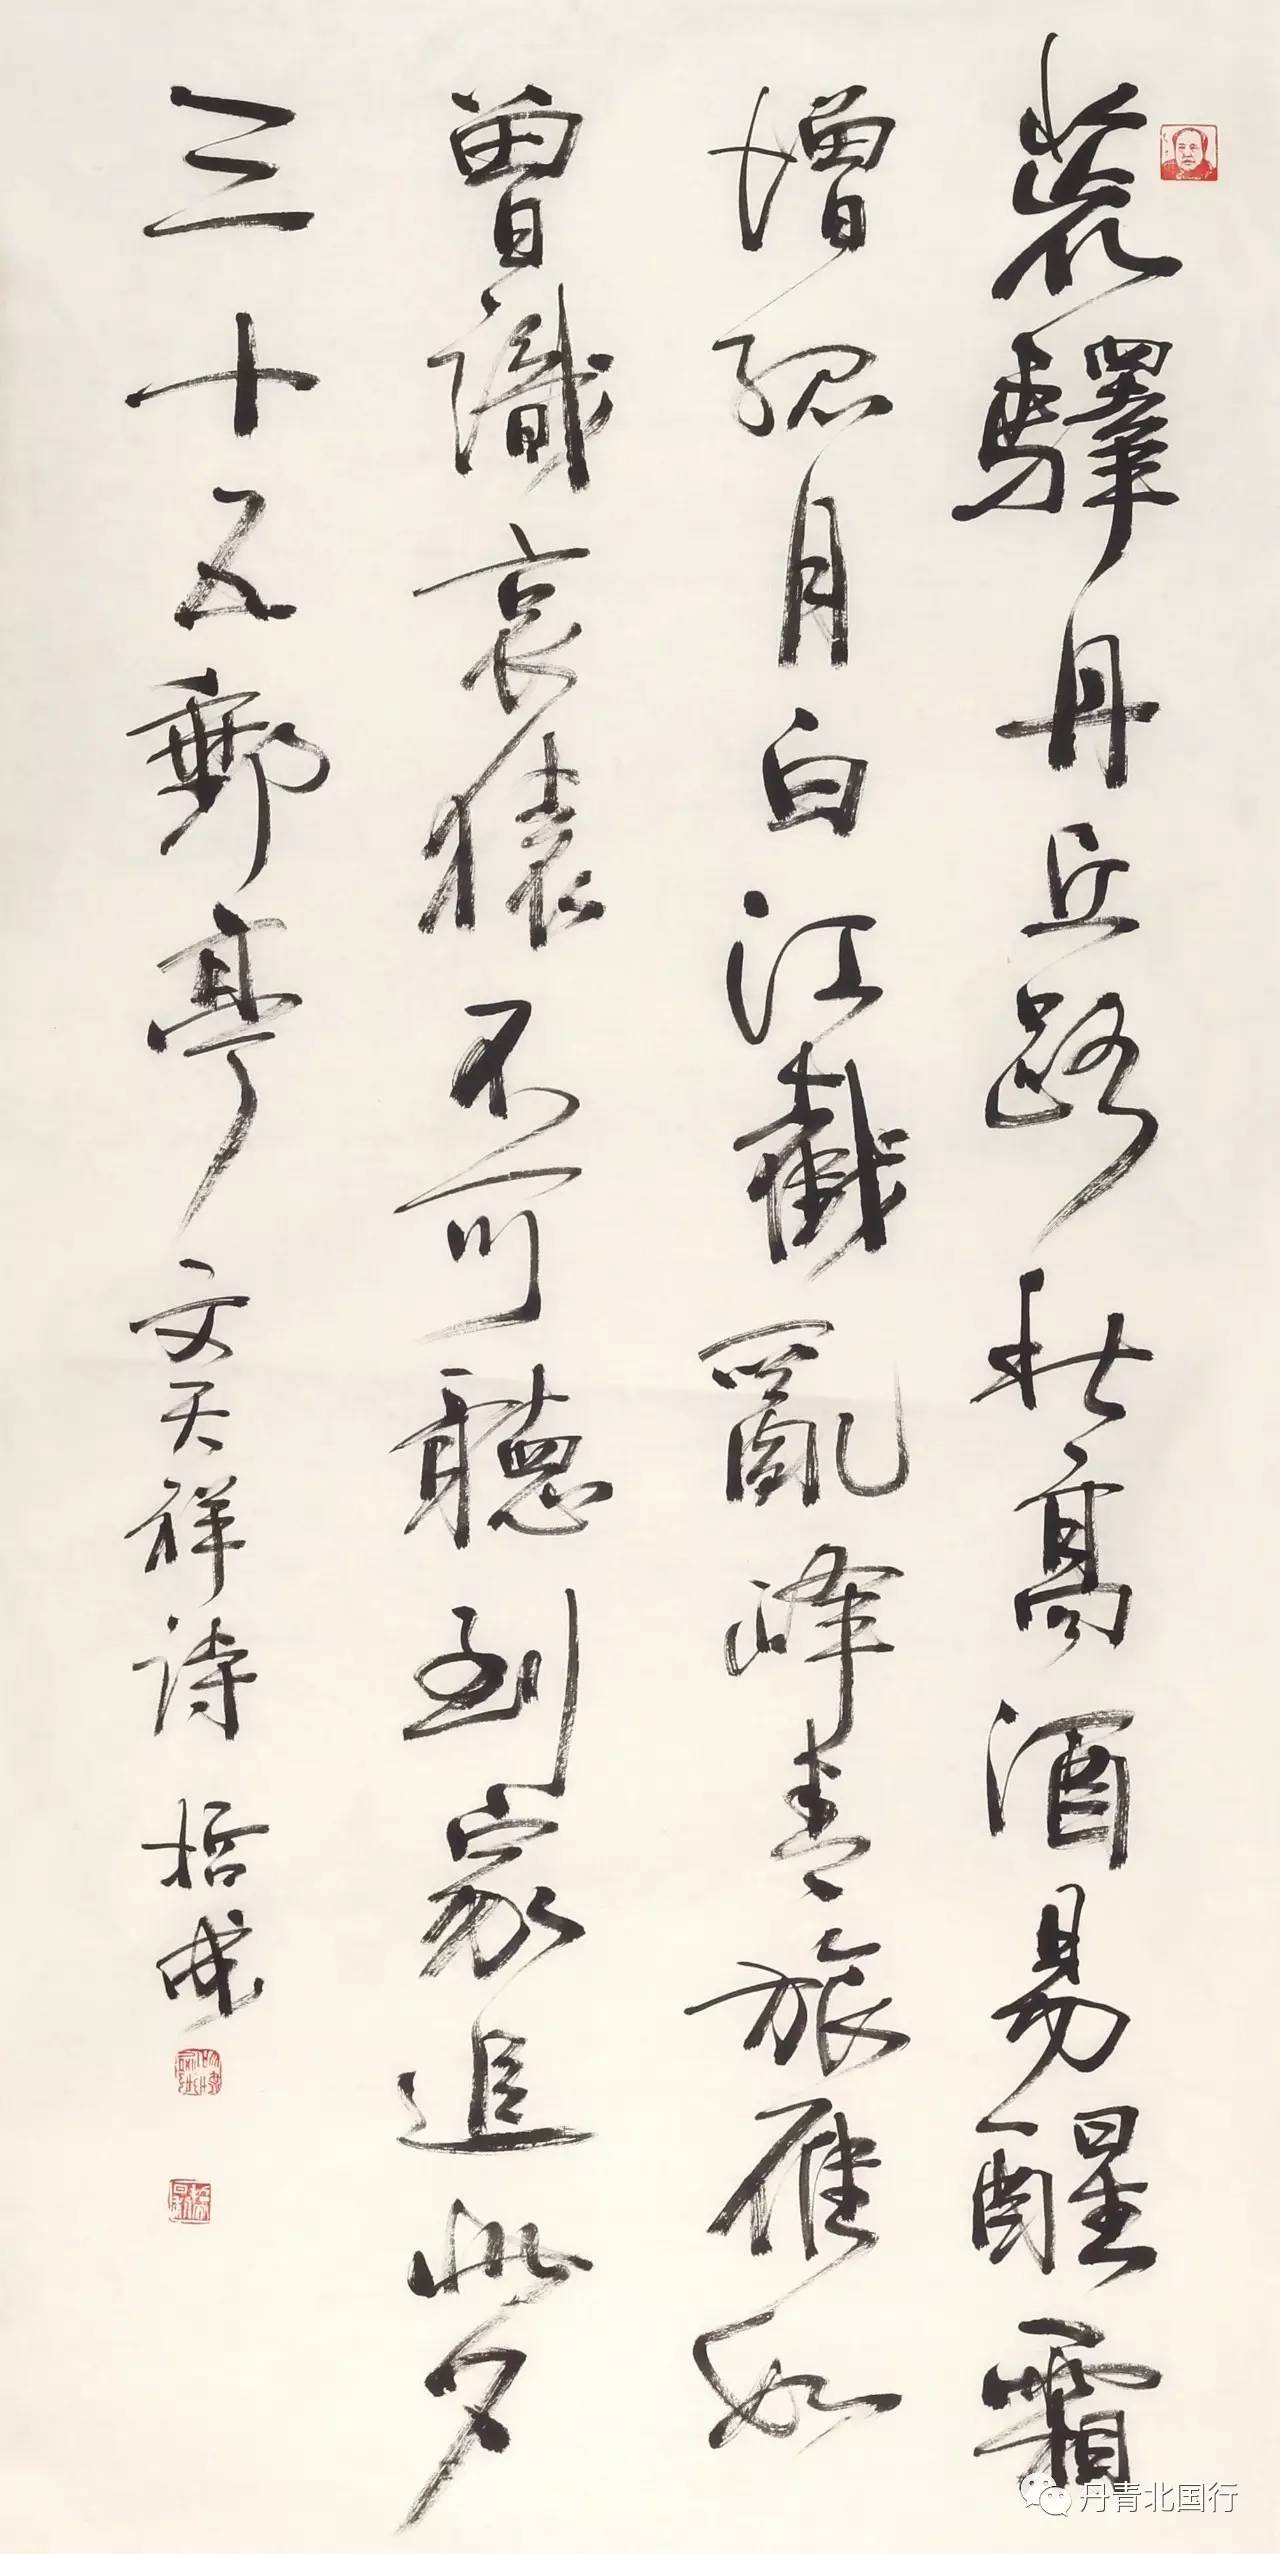 荒驛丹丘路秋高酒易醒霜
增孤月白江截亂峰青旅雁如
曾識哀猿不可聽到家追此夕
三十五郵亭文天祥詩 哲成
丹青北国行